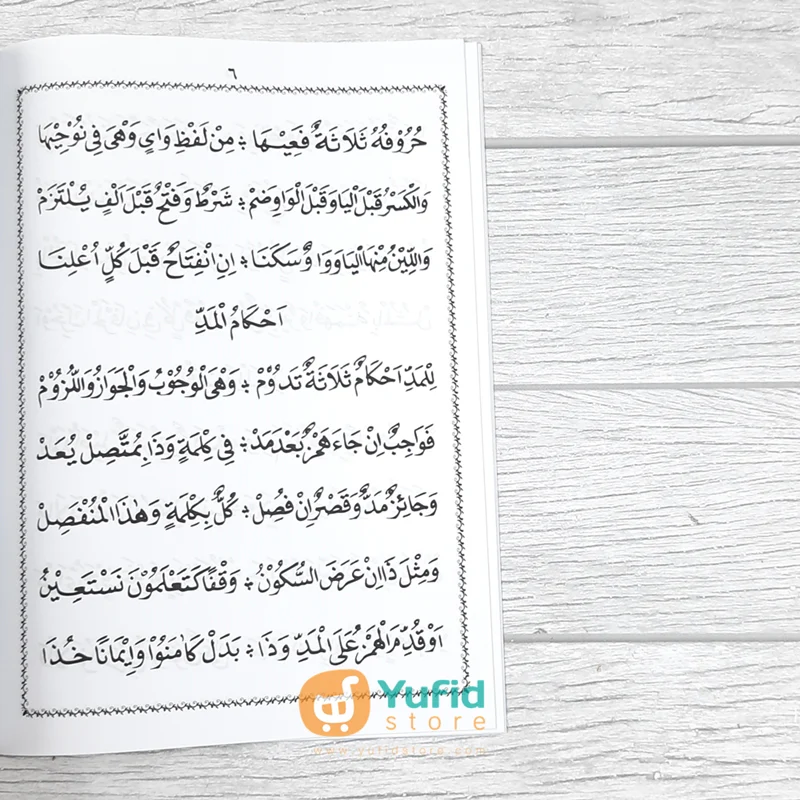 ٦
حُرُوْفُهُ ثَلَاثَةٌ فَعِيْهَا ؞ مِنْ لَفْظِ وَايٍ وَهْىَ فِى نُوْحِيْهَا
وَالْكَسْرُ قَبْلَ الْيَا وَقَبْلَ الْوَاوِ ضَمْ ؞ شَرْطٌ وَفَتْحٌ قَبْلَ اَلْفٍ يُلْتَزَمْ
وَاللِّيْنُ مِنْهَا الْيَا وَوَاوٌ سَكَنَا ؞ اِنِ انْفِتَاحٌ قَبْلَ كُلٍّ اُعْلِنَا
اَحْكَامُ الْمَدِّ
لِلْمَدِّ اَحْكَامٌ ثَلَاثَةٌ تَدُوْمْ ؞ وَهْىَ الْوُجُوْبُ وَالْجَوَازُ وَاللُّزُوْمْ
فَوَاجِبٌ اِنْ جَاءَ هَمْزٌ بَعْدَ مَدْ ؞ فِى كِلْمَةٍ وَذَا بِمُتَّصِلْ يُعَدْ
وَجَائِزٌ مَدٌّ وَقَصْرٌ اِنْ فُصِلْ ؞ كُلٌّ بِكِلْمَةٍ وَهٰذَا الْمُنْفَصِلْ
وَمِثْلُ ذَا اِنْ عَرَضَ السُّكُوْنُ ؞ وَقْفًا كَتَعْلَمُوْنَ نَسْتَعِيْنُ
اَوْ قُدِّمَ الْهَمْزُ عَلَى الْمَدِّ وَذَا ؞ بَدَلْ كَاٰمَنُوْا وَاِيْمَانًا خُذَا
Yufid
store
www.yufidstore.com